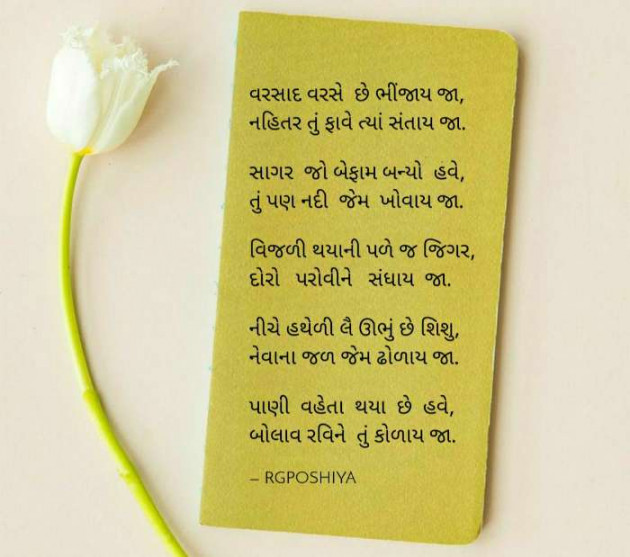 વરસાદ વરસે છે ભીંજાય જા,
નહિતર તું ફાવે ત્યાં સંતાય જા.
સાગર જો બેફામ બન્યો હવે,
તું પણ નદી જેમ ખોવાય જા.
વિજળી થયાની પળે જ જિગર,
દોરો પરોવીને સંધાય જા.
નીચે હથેળી લૈ ઊભું છે શિશુ,
નેવાના જળ જેમ ઢોળાય જા.
પાણી વહેતા થયા છે હવે,
બોલાવ રવિને તું કોળાય જા.
– RGPOSHIYA